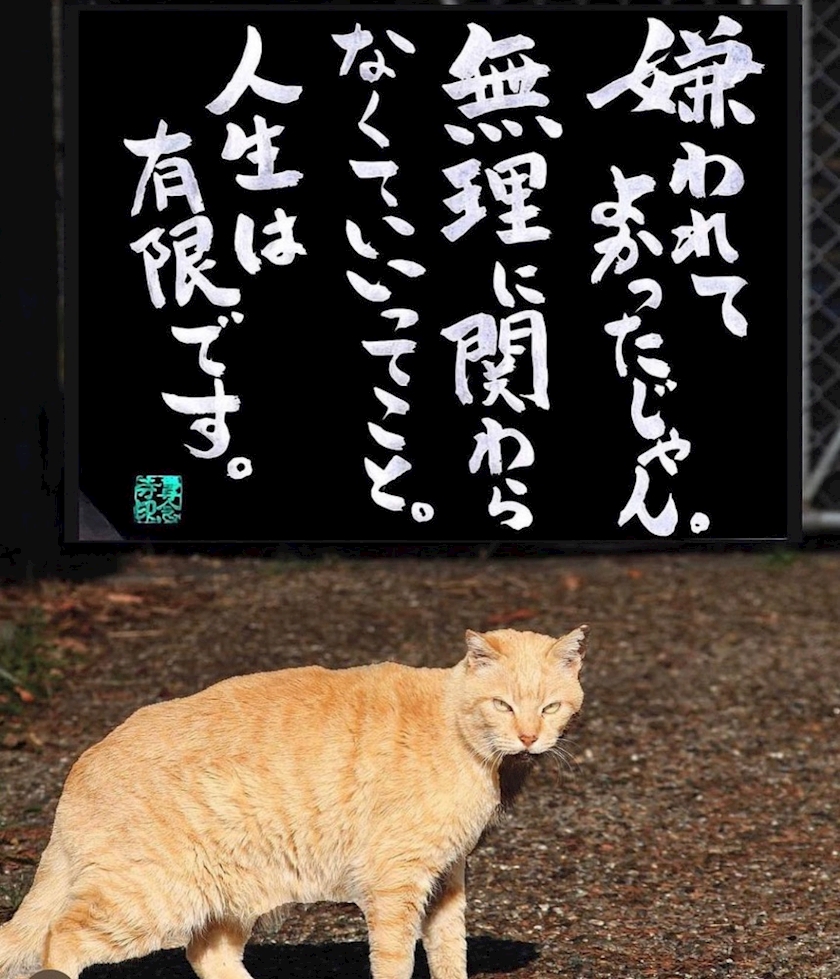 嫌われて
よかったじゃん。
無理に関わら
なくていいいってこと。
人生は
有限です。